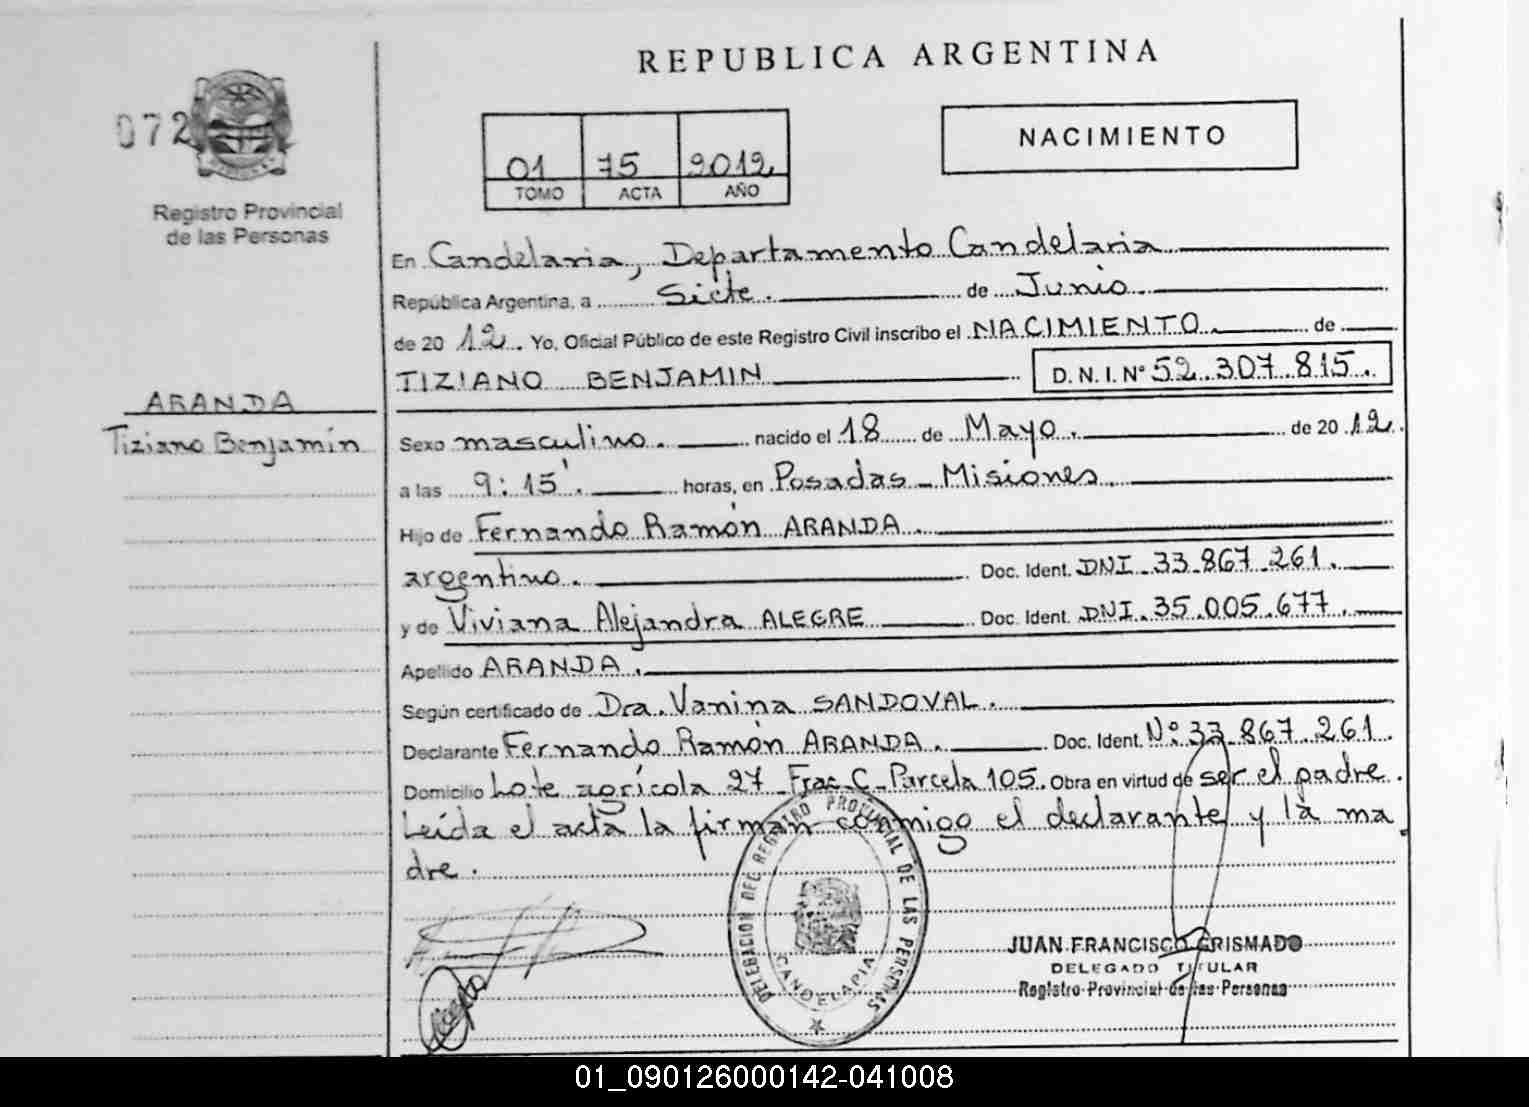 REPUBLICA ARGENTINA
072
Registro Provincial
de las Personas
01 75 2012
TOMO ACTA AÑO
NACIMIENTO
En Candelaria, Departamento Candelaria
República Argentina, a Siete. de Junio
de 2012. Yo, Oficial Público de este Registro Civil inscribo el NACIMIENTO de
TIZIANO BENJAMIN D.N.I. Nº 52.307.815.
ARANDA
Tiziano Benjamín
Sexo masculino. nacido el 18 de Mayo. de 2012.
a las 9:15'. horas, en Posadas - Misiones.
Hijo de Fernando Ramón ARANDA.
argentino. Doc. Ident. DNI. 33.867.261.
y de Viviana Alejandra ALEGRE Doc. Ident. DNI. 35.005.677.
Apellido ARANDA.
Según certificado de Dra. Vanina SANDOVAL.
Declarante Fernando Ramón ARANDA. Doc. Ident. Nº 33.867.261.
Domicilio Lote agrícola 27 Frac. C. Parcela 105. Obra en virtud de ser el padre.
Leída el acta la firman conmigo el declarante y la ma
dre.
DELEGACION DEL REGISTRO PROVINCIAL DE LAS PERSONAS
CANDELARIA
JUAN FRANCISCO GRISMADO
DELEGADO TITULAR
Registro Provincial de las Personas
01_090126000142-041008